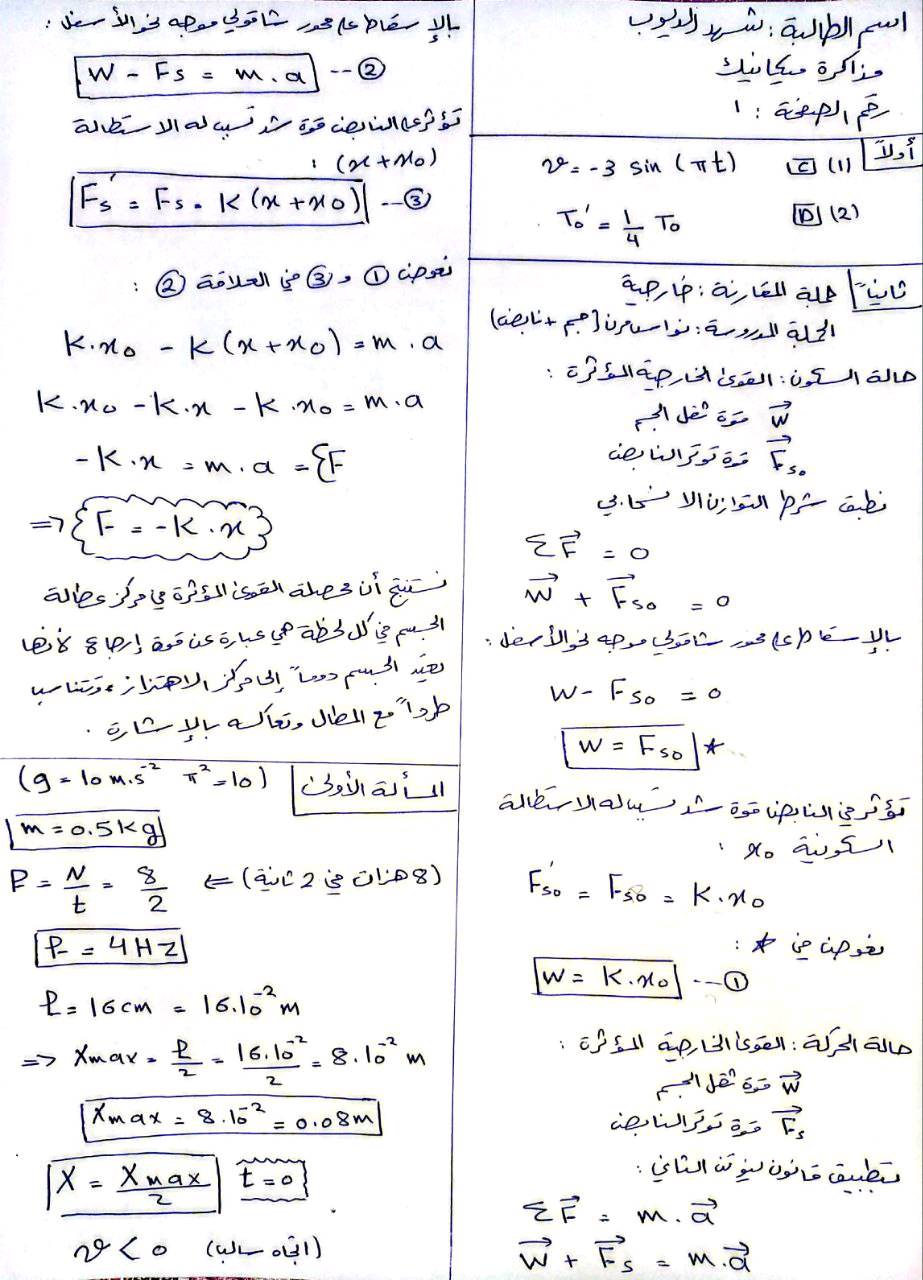 اسم الطالبة : شهد الديوب
مذاكرة ميكانيك
رقم الصفحة : ١
أولاً
(1) C v = -3 sin (πt)
(2) D T₀' = 1/4 T₀
ثانياً جملة المقارنة : خارجية
الجملة المدروسة : نواس مرن (جسم + نابض)
حالة السكون : القوى الخارجية المؤثرة :
W⃗ قوة ثقل الجسم
F⃗s₀ قوة توتر النابض
نطبق شرط التوازن الانسحابي
ΣF⃗ = 0
W⃗ + F⃗s₀ = 0
بالإسقاط على محور شاقولي موجه نحو الأسفل :
W - Fs₀ = 0
W = Fs₀ *
تؤثر في النابض قوة شد تسبب له الاستطالة
السكونية x₀ :
F's₀ = Fs₀ = K.x₀
نعوض في * :
W = K.x₀ --- ①
حالة الحركة : القوى الخارجية المؤثرة :
W⃗ قوة ثقل الجسم
F⃗s قوة توتر النابض
بتطبيق قانون نيوتن الثاني :
ΣF⃗ = m.a⃗
W⃗ + F⃗s = m.a⃗
بالإسقاط على محور شاقولي موجه نحو الأسفل :
W - Fs = m.a --- ②
تؤثر على النابض قوة شد تسبب له الاستطالة
(x + x₀) :
Fs' = Fs = K(x + x₀) --- ③
نعوض ① و ③ في العلاقة ② :
K.x₀ - K(x + x₀) = m.a
K.x₀ - K.x - K.x₀ = m.a
-K.x = m.a = ΣF
⇒ F = -K.x
نستنتج أن محصلة القوى المؤثرة في مركز عطالة
الجسم في كل لحظة هي عبارة عن قوة إرجاع لأنها
تعيد الجسم دوماً إلى مركز الاهتزاز ، وتتناسب
طرداً مع المطال وتعاكسه بالإشارة .
المسألة الأولى (g = 10 m.s⁻² π² = 10)
m = 0.5 kg
(8 هزات في 2 ثانية) ⇐ f = N/t = 8/2
f = 4 Hz
ℓ = 16 cm = 16.10⁻² m
⇒ Xmax = ℓ/2 = 16.10⁻²/2 = 8.10⁻² m
Xmax = 8.10⁻² = 0.08 m
X = Xmax/2 t = 0
v < 0 (اتجاه سالب)